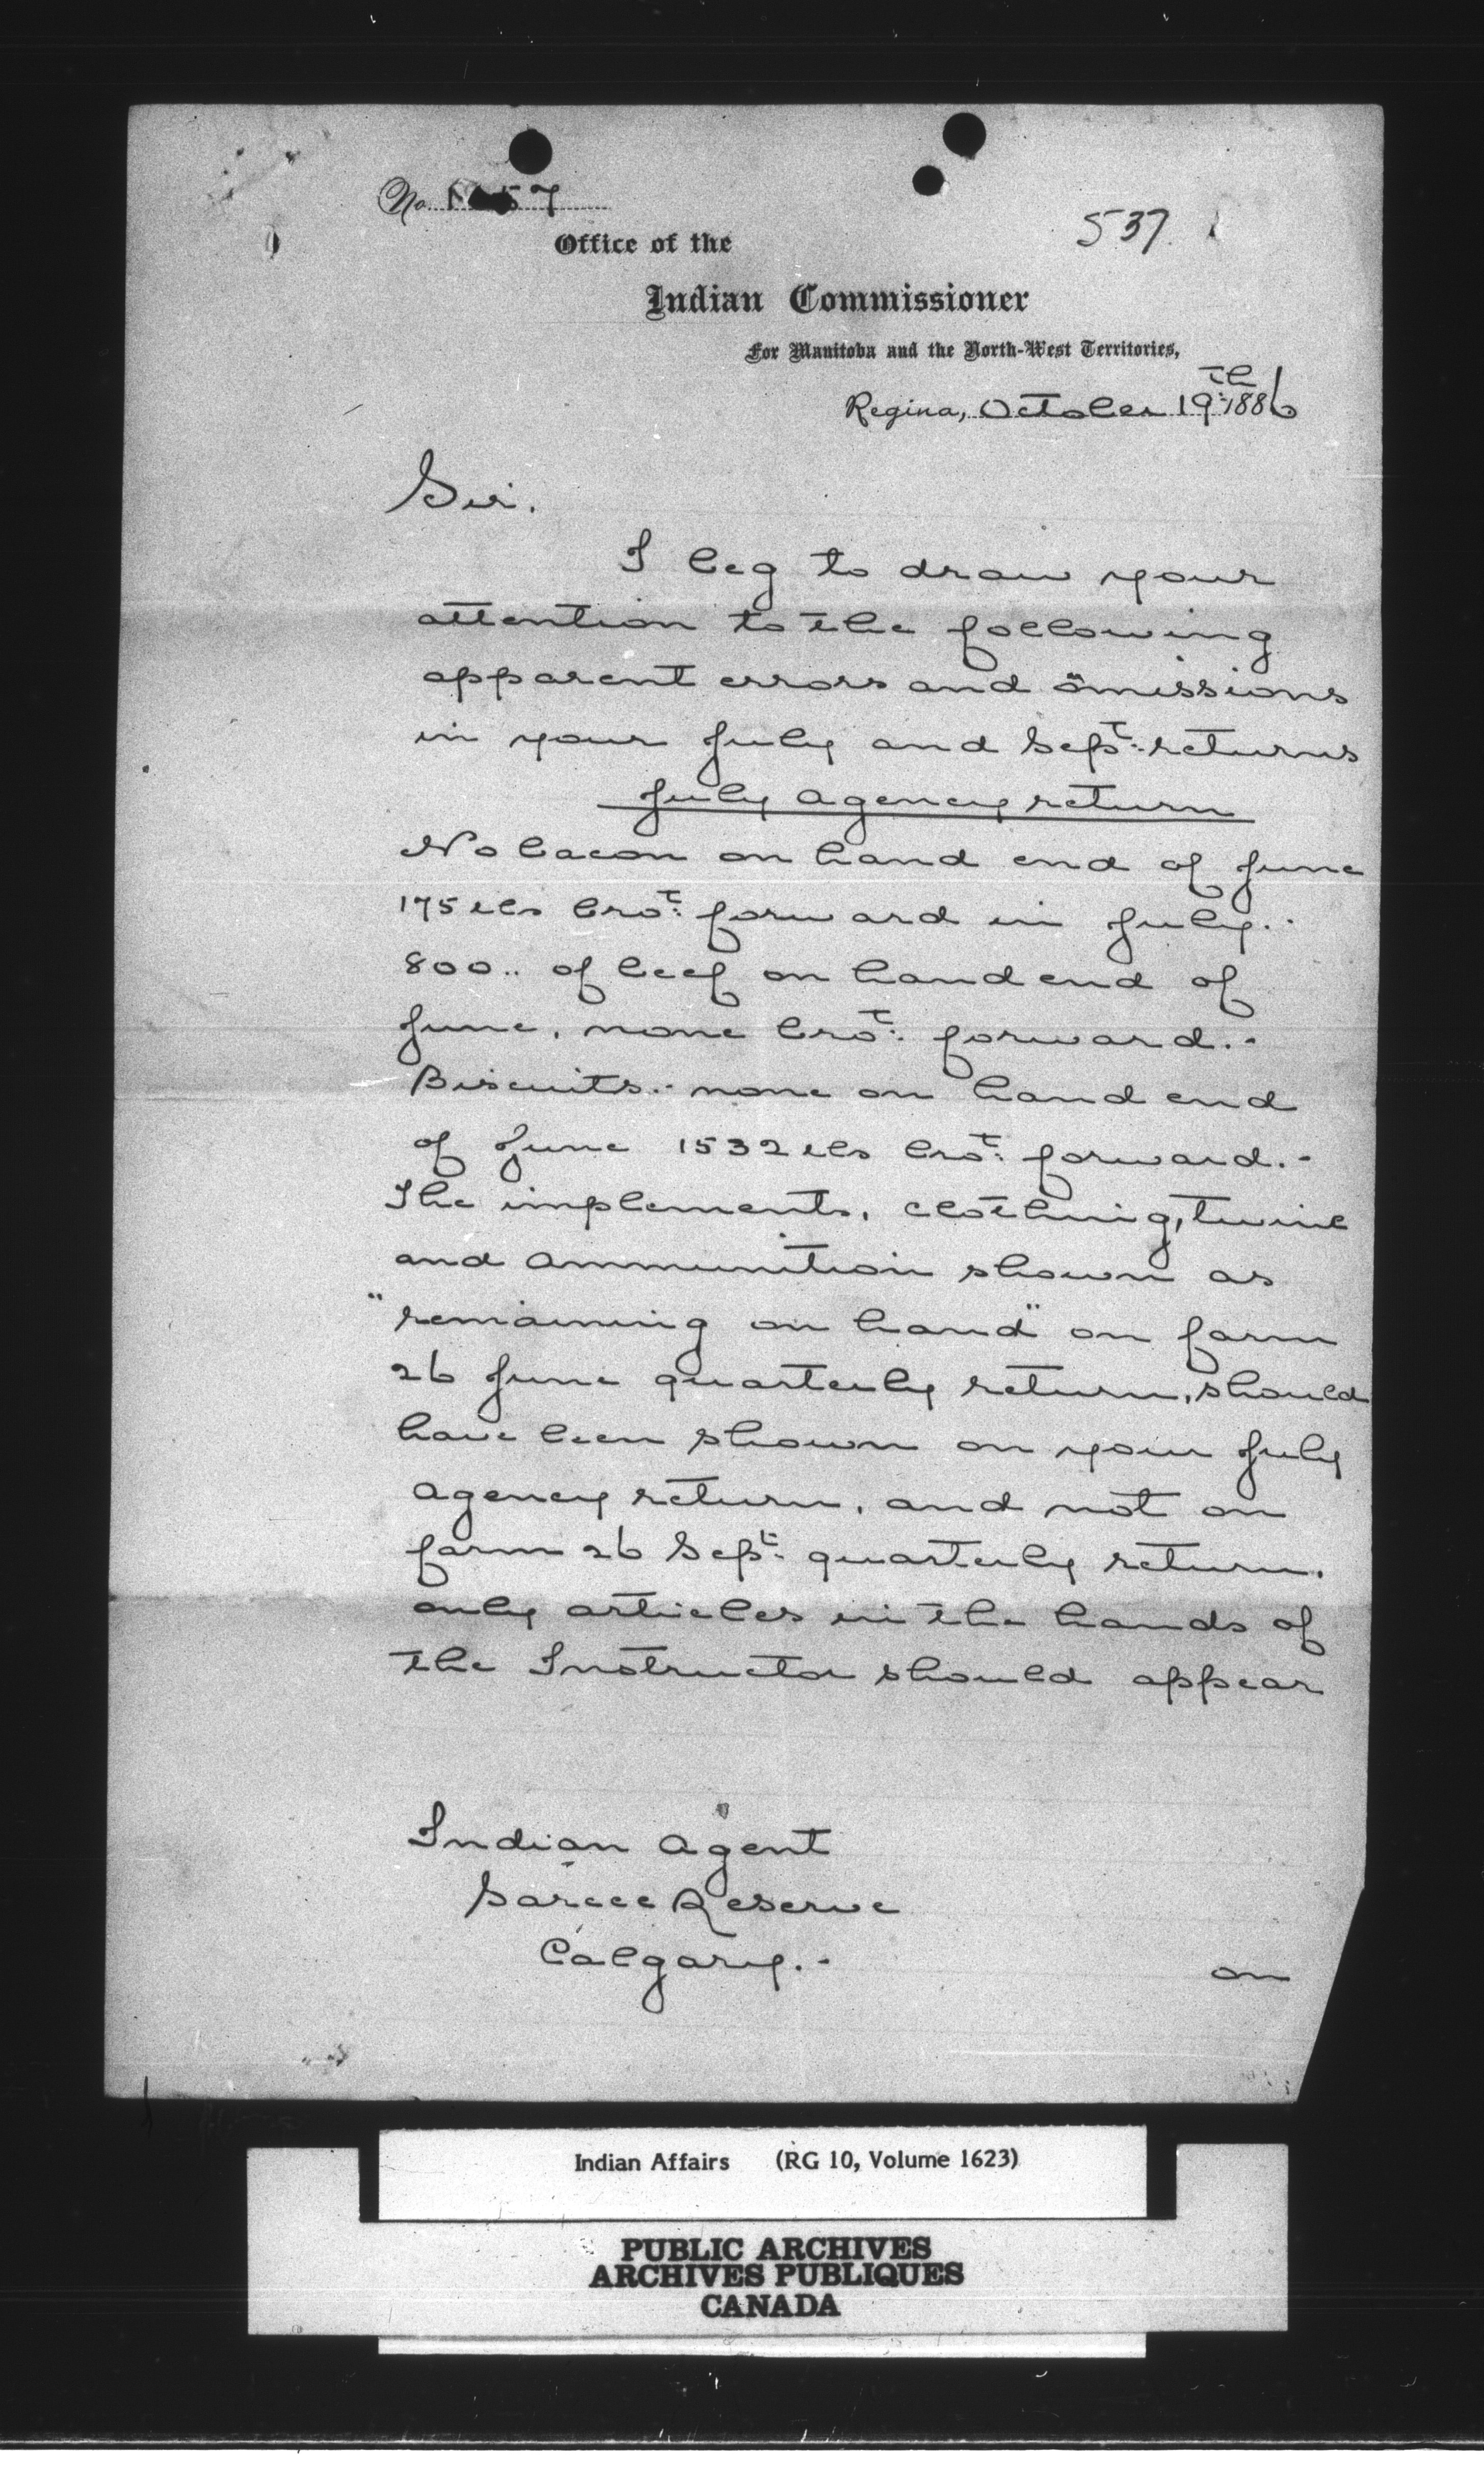 No. 57
537.
Office of the
Indian Commissioner
For Manitoba and the North-West Territories,
Regina, October 19th 1886
Sir.
I beg to draw your
attention to the following
apparent errors and omissions
in your July and Sept: returns
July Agency return
No bacon on hand end of June
175 lbs bro't: forward in July.-
800 .. of beef on hand end of
June, none bro't: forward.-
Biscuits.- none on hand end
of June 1532 lbs bro't: forward.-
The implements, clothing, twine
and ammunition shown as
"remaining on hand" on farm
26 June quarterly return, should
have been shown on your July
Agency return, and not on
farm 26 Sept: quarterly return.
only articles in the hands of
the Instructor should appear
Indian Agent
Sarcee Reserve
Calgary.-
on
Indian Affairs (RG 10, Volume 1623)
PUBLIC ARCHIVES
ARCHIVES PUBLIQUES
CANADA